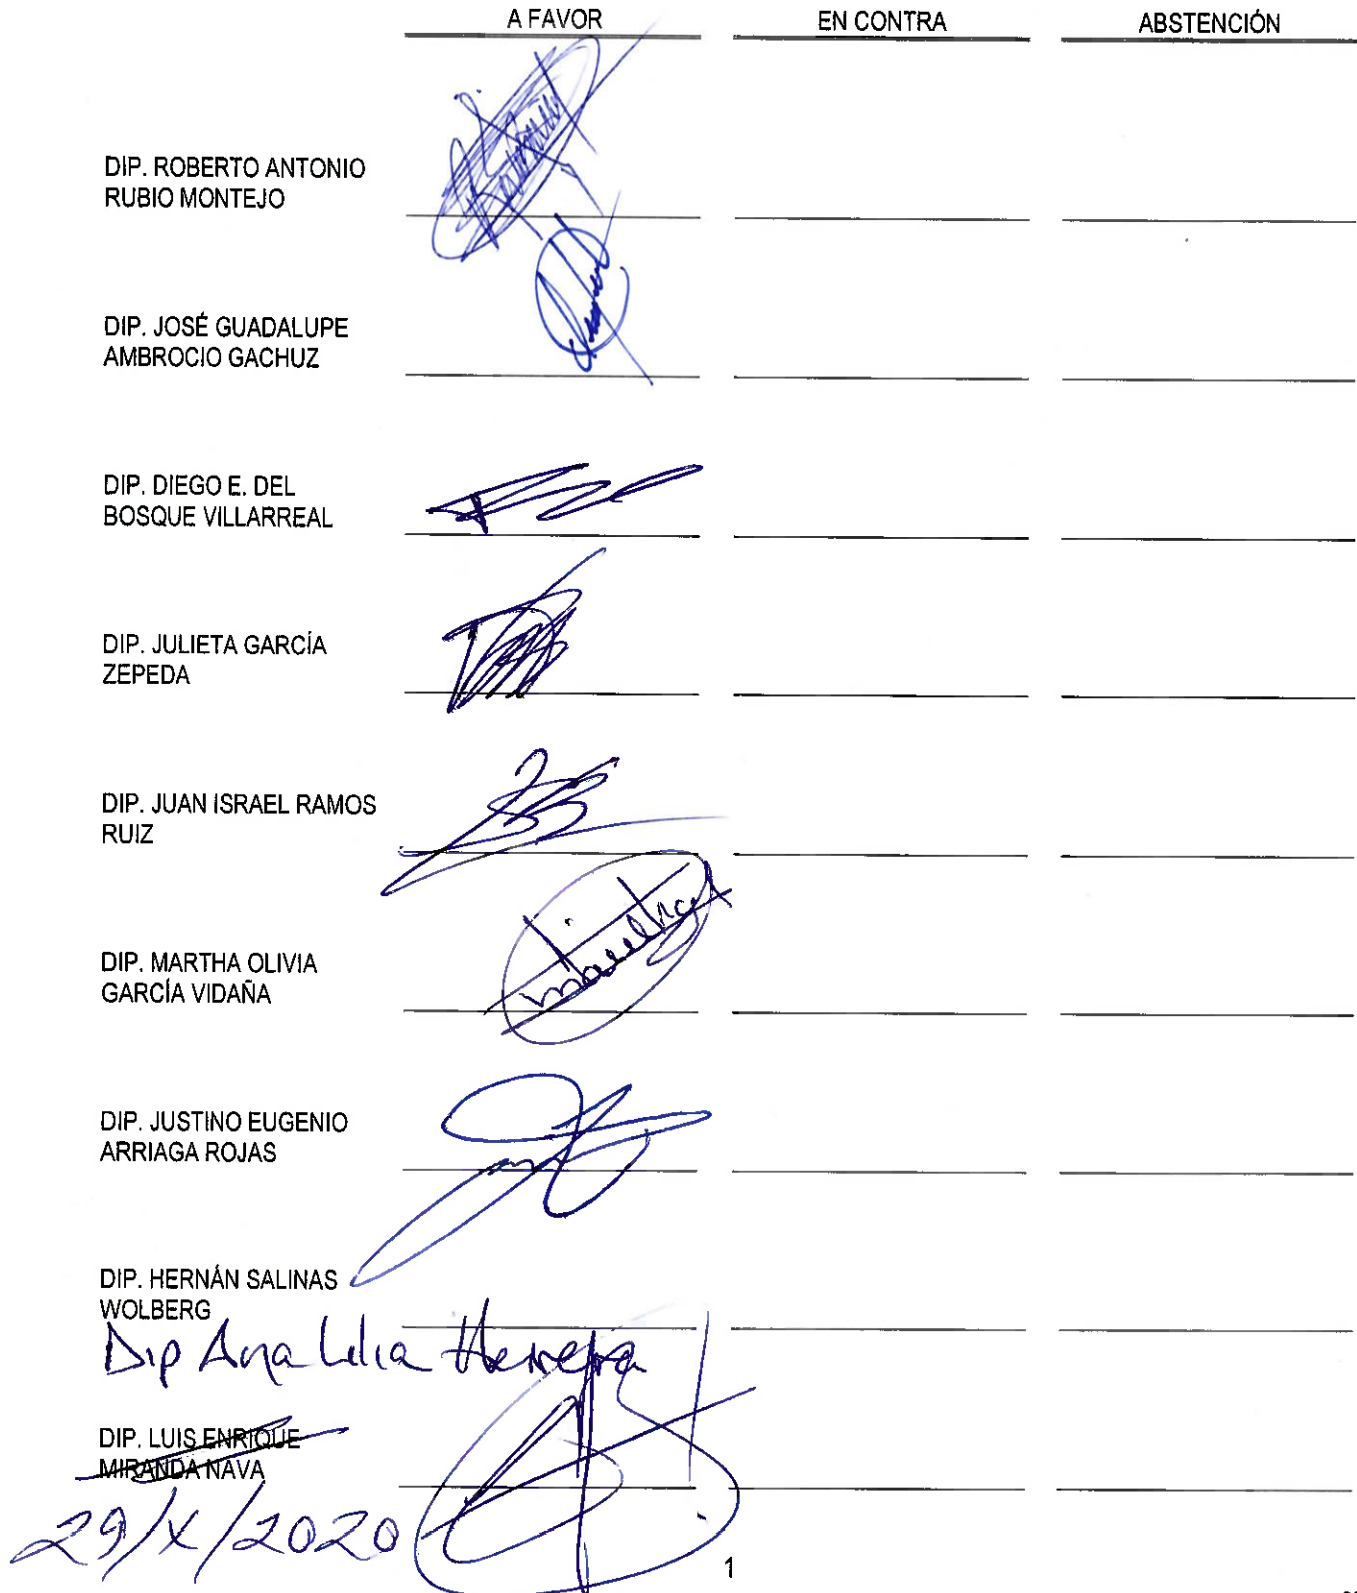 A FAVOR EN CONTRA ABSTENCIÓN
DIP. ROBERTO ANTONIO
RUBIO MONTEJO
DIP. JOSÉ GUADALUPE
AMBROCIO GACHUZ
DIP. DIEGO E. DEL
BOSQUE VILLARREAL
DIP. JULIETA GARCÍA
ZEPEDA
DIP. JUAN ISRAEL RAMOS
RUIZ
DIP. MARTHA OLIVIA
GARCÍA VIDAÑA
DIP. JUSTINO EUGENIO
ARRIAGA ROJAS
DIP. HERNÁN SALINAS
WOLBERG
Dip Ana Lilia Herrera
DIP. LUIS ENRIQUE
MIRANDA NAVA
29/X/2020
1